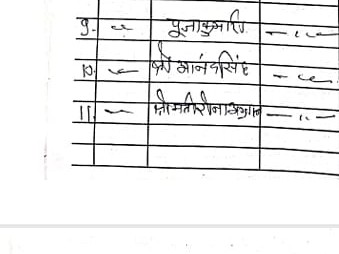 9. -〃- पूजाकुमारी -〃-
10. -〃- श्री आनंदसिंह -〃-
11. -〃- श्रीमती -〃-